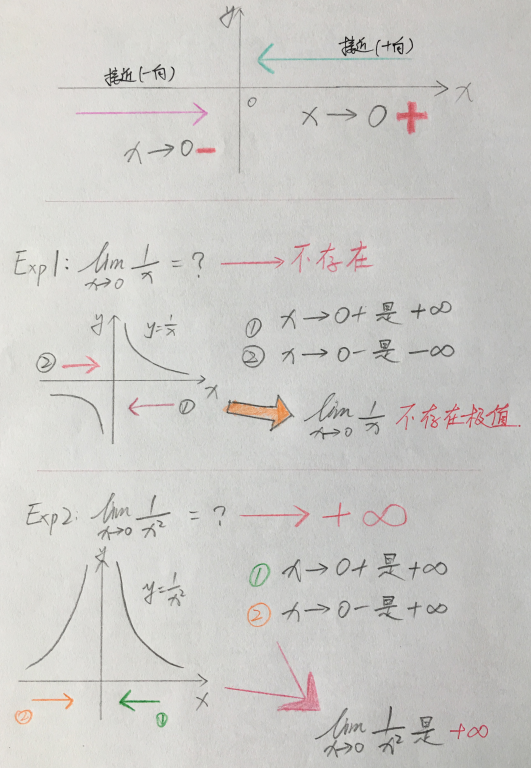 y
接近(一向)
接近(+向)
0
x
x→0-
x→0+
Exp1: lim x→0 1/x = ? → 不存在
y
y=1/x
① x→0+是+∞
② x→0-是-∞
②
①
x
lim x→0 1/x 不存在极值.
Exp2: lim x→0 1/x² = ? → +∞
y
y=1/x²
① x→0+是+∞
② x→0-是+∞
②
①
x
lim x→0 1/x² 是 +∞